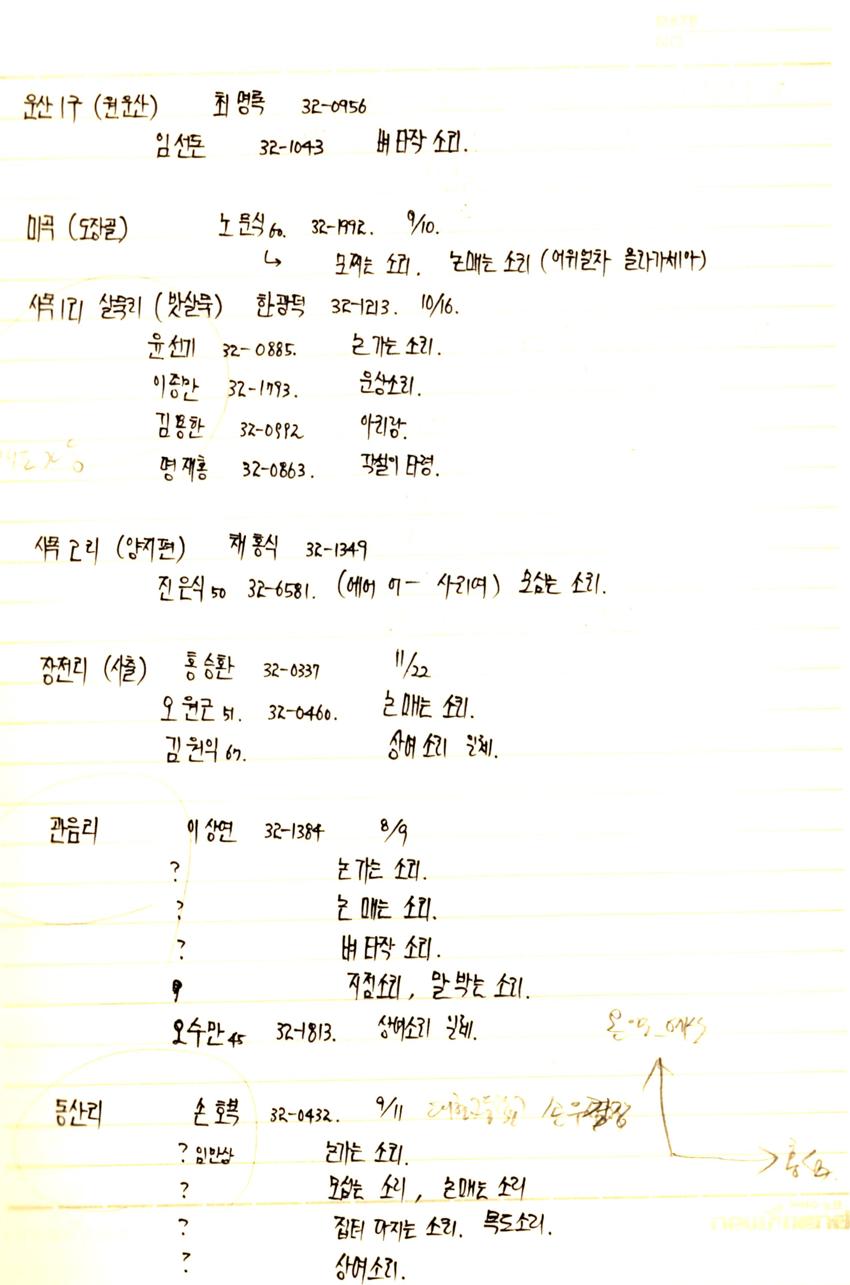 운산1구 (원운산) 최명록 32-0956
임선돈 32-1043 벼타작 소리.
미곡 (도장골) 노문식 60. 32-1992. 9/10.
↳ 모찌는 소리. 논매는 소리 (어위얼차 올라가세아)
사목1리 살목리 (밧살목) 한광덕 32-1213. 10/16.
윤선기 32-0885. 논가는 소리.
이종만 32-1793. 운상소리.
김용한 32-0992 아리랑.
명재홍 32-0863. 각설이 타령.
사목2리 (양지편) 채홍식 32-1349
진은식 50 32-6581. (에어 어ー 사리여) 모심는 소리.
장전리 (사출) 홍승환 32-0337 11/22
오원근 51. 32-0460. 논매는 소리.
김원의 67. 상여소리 일체.
관음리 이상연 32-1384 8/9
? 논가는 소리.
? 논매는 소리.
? 벼타작 소리.
지점소리, 말박는 소리.
오수만 45 32-1813. 상여소리 일체.
동산리 손호복 32-0432. 9/11
? 임만상 논가는 소리.
? 모심는 소리, 논매는 소리
? 집터 다지는 소리. 목도소리.
? 상여소리.